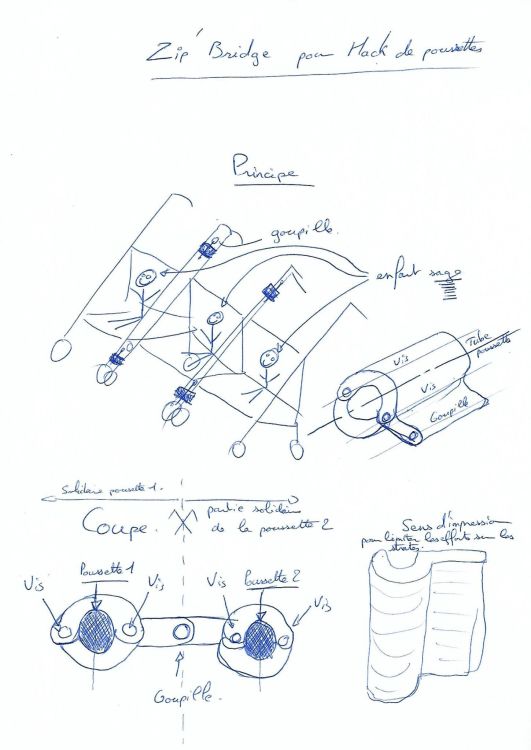 Zip' Bridge pour Hack de poussettes
Principe
goupille.
enfant sage
Tube
poussette
Vis
Vis
Goupille
Solidaire poussette 1.
partie solidaire
de la poussette 2
Coupe.
Sens d'impression
pour limiter les efforts sur les
strates.
Poussette 1
Poussette 2
Vis
Vis
Vis
Vis
Goupille.